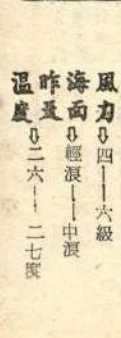 風力⇨四——六級
海面⇨輕浪——中浪
昨最
溫度⇨二六——二七度